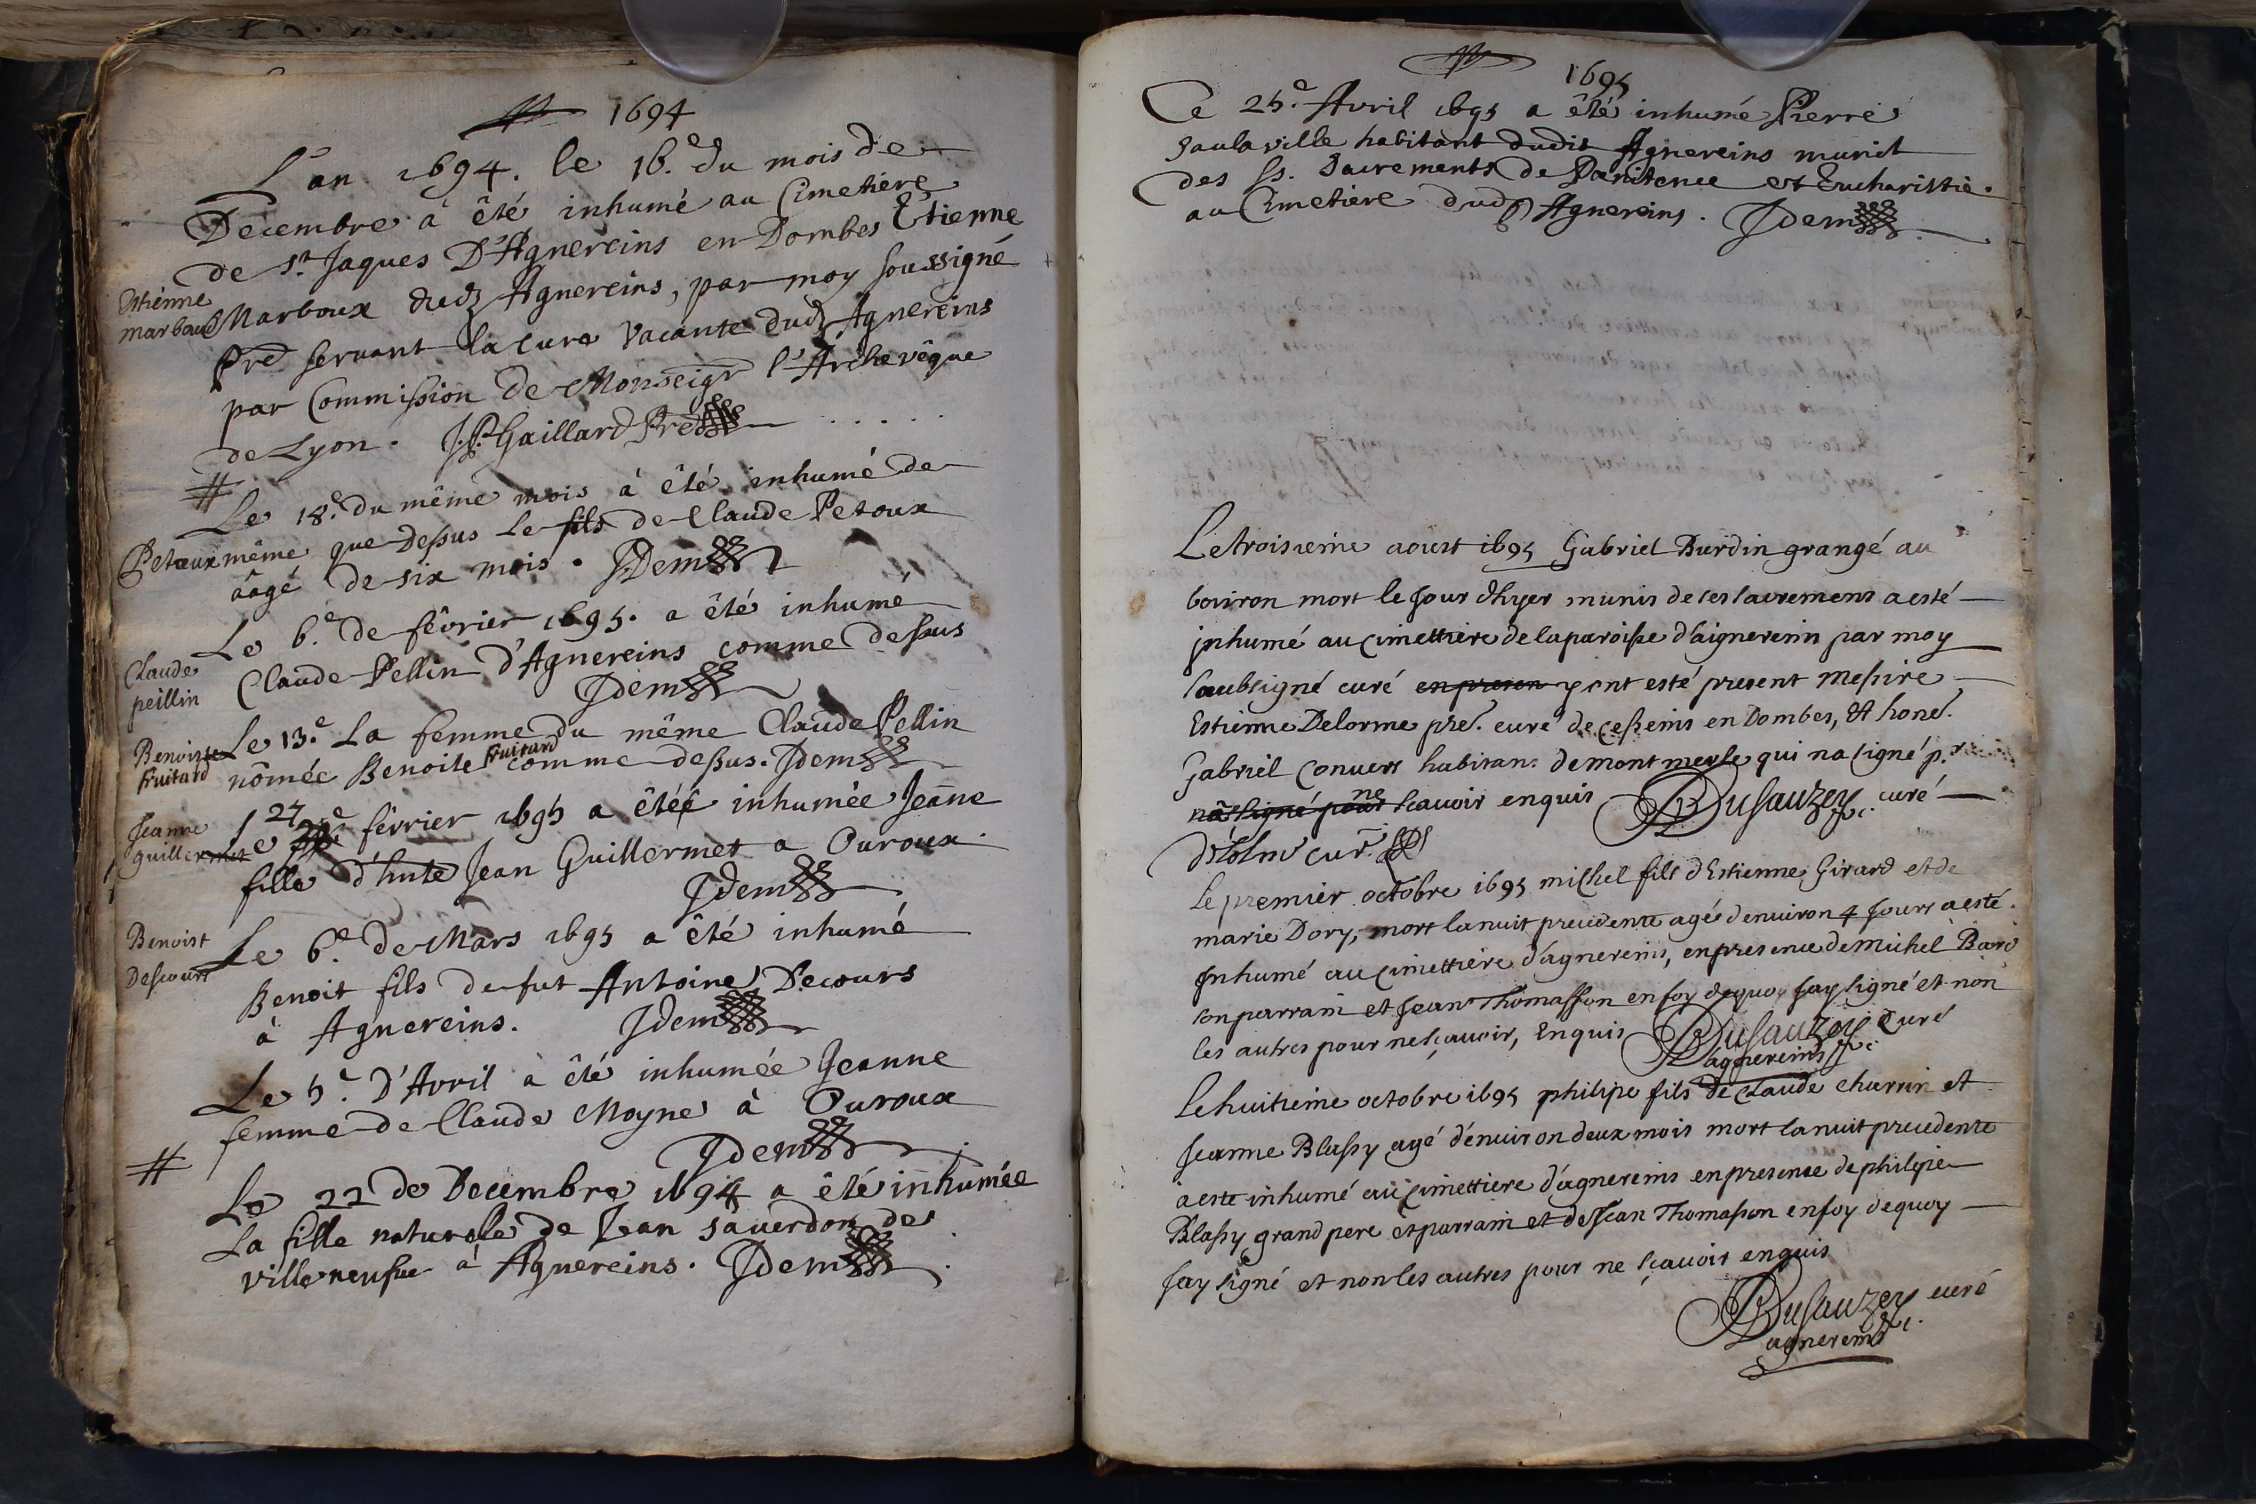 1694
L'an 1694. le 16.e du mois de
Decembre à êté inhumé au Cimetiere
de St. Jaques D'Agnereins en Dombes Etienne
Estienne
marboud
Marboux dud. Agnereins, par moy soussigné
Pre. servant la cure vacante dud. Agnereins
par Commission de Monseigr. l'Archevêque
de Lyon. J.P. Gaillard Pre.
#
Le 18.e du même mois à êté inhumé de
Petoux
même que dessus le fils de Claude Petoux
âagé de six mois. JDem
Le 6.e de fêvrier 1695. a êté inhumé
Claude
peillin
Claude Pellin d'Agnereins comme dessus
Jdem
Benoiste
fruitard
Le 13.e La femme du même Claude Pellin
nômée Benoite fruitard comme dessus. Jdem
Jeanne
guillermet
Le 27 février 1695 a êtéé inhumée Jeane
fille d'hnte Jean Guillermet a Ouroux.
Jdem
Benoist
Descours
Le 6.e de Mars 1695 a êté inhumé
Benoit fils de fut Antoine Decours
à Agnereins. Jdem
Le 5.e D'Avril à êté inhumée Jeanne
femme de Claude Moyne à Ouroux
Jdem
#
Le 22 de Decembre 1694 a êté inhumée
La fille naturele de Jean saverdon de
villeneufue à Agnereins. Jdem
1695
Ce 25.e Avril 1695 a êté inhumé Pierre
Saulaville habitant dudit Agnereins munit
des Ss. Sacrements de Pænitence et Eucharistie.
au Cimetiere dud. Agnereins. Jdem
Le troisieme aoust 1695 Gabriel Burdin grangé au
boviron mort le Jour d'hyer munis de ses sacremens a esté
jnhumé au cimettiere de la paroisse d'aignereins par moy
soubsigné curé en presen y ont esté present messire
Estienne Delorme pre. curé de cesseins en Dombes, Et hone.
Gabriel Convert habitant de montmerle qui na signé p.r
na signé pour ne scavoir enquis DuSauzey curé
Delolme cur.
Le premier octobre 1695 michel fils d'Estienne Girard et de
marie Dory, mort la nuit precedente agée d'environ 4 Jours a esté
Jnhumé au cimettiere d'agnereins, en presence de michel Bard
son parrain et Jean Thomasson en foy de quoy Jay signé et non
les autres pour ne sçavoir, Enquis DuSauzey Curé
dagnereins
Le huitieme octobre 1695 philipe fils de claude charrin et
Jeanne Blassy agé d'environ deux mois mort la nuit precedente
a este inhumé au cimettiere d'agnereins en presence de philipe
Blassy grand pere et parrain et de Jean Thomasson en foy de quoy
Jay signé et non les autres pour ne sçavoir enquis
DuSauzey curé
dagnereins